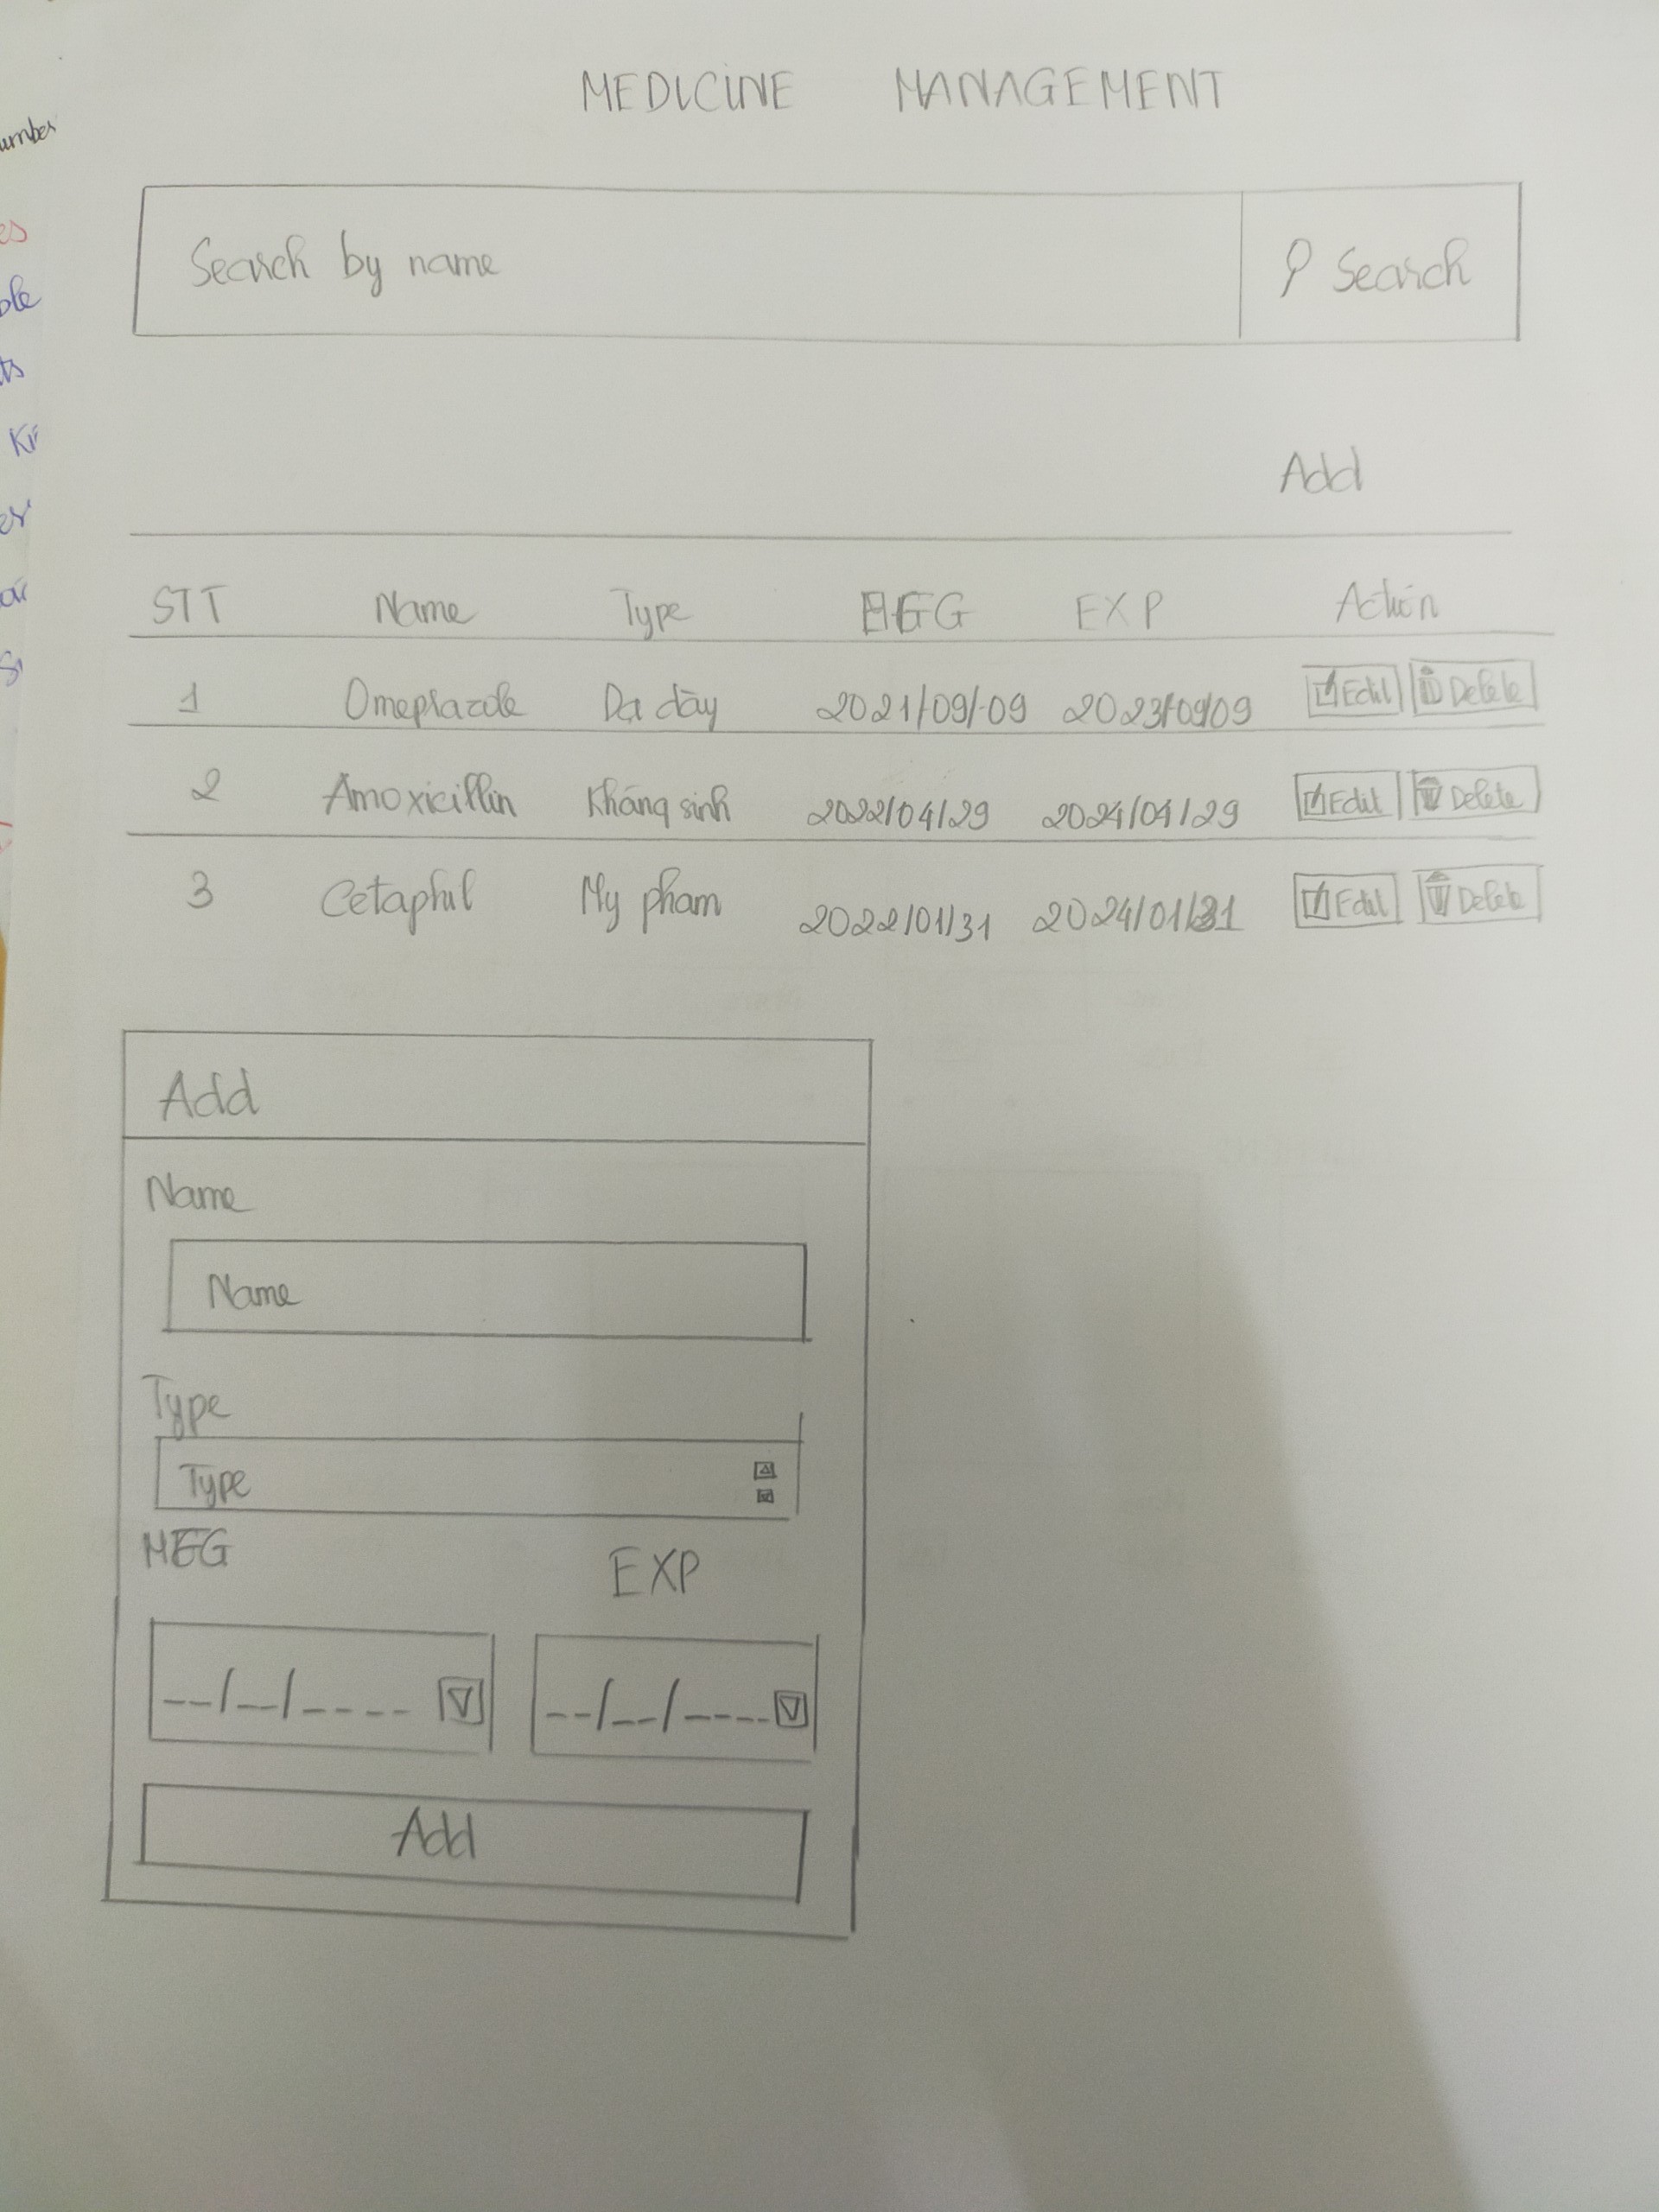 MEDICINE MANAGEMENT
umber
Search by name
Search
es
ole
ts
Add
STT Name Type MFG EXP Action
1 Omeprazole Dạ dày 2021/09/09 2023/09/09 Edit Delete
2 Amoxicillin Kháng sinh 2022/04/29 2024/04/29 Edit Delete
3 Cetaphil My pham 2022/01/31 2024/01/31 Edit Delete
Add
Name
Name
Type
Type
MFG EXP
__/__/____ __/__/____
Add